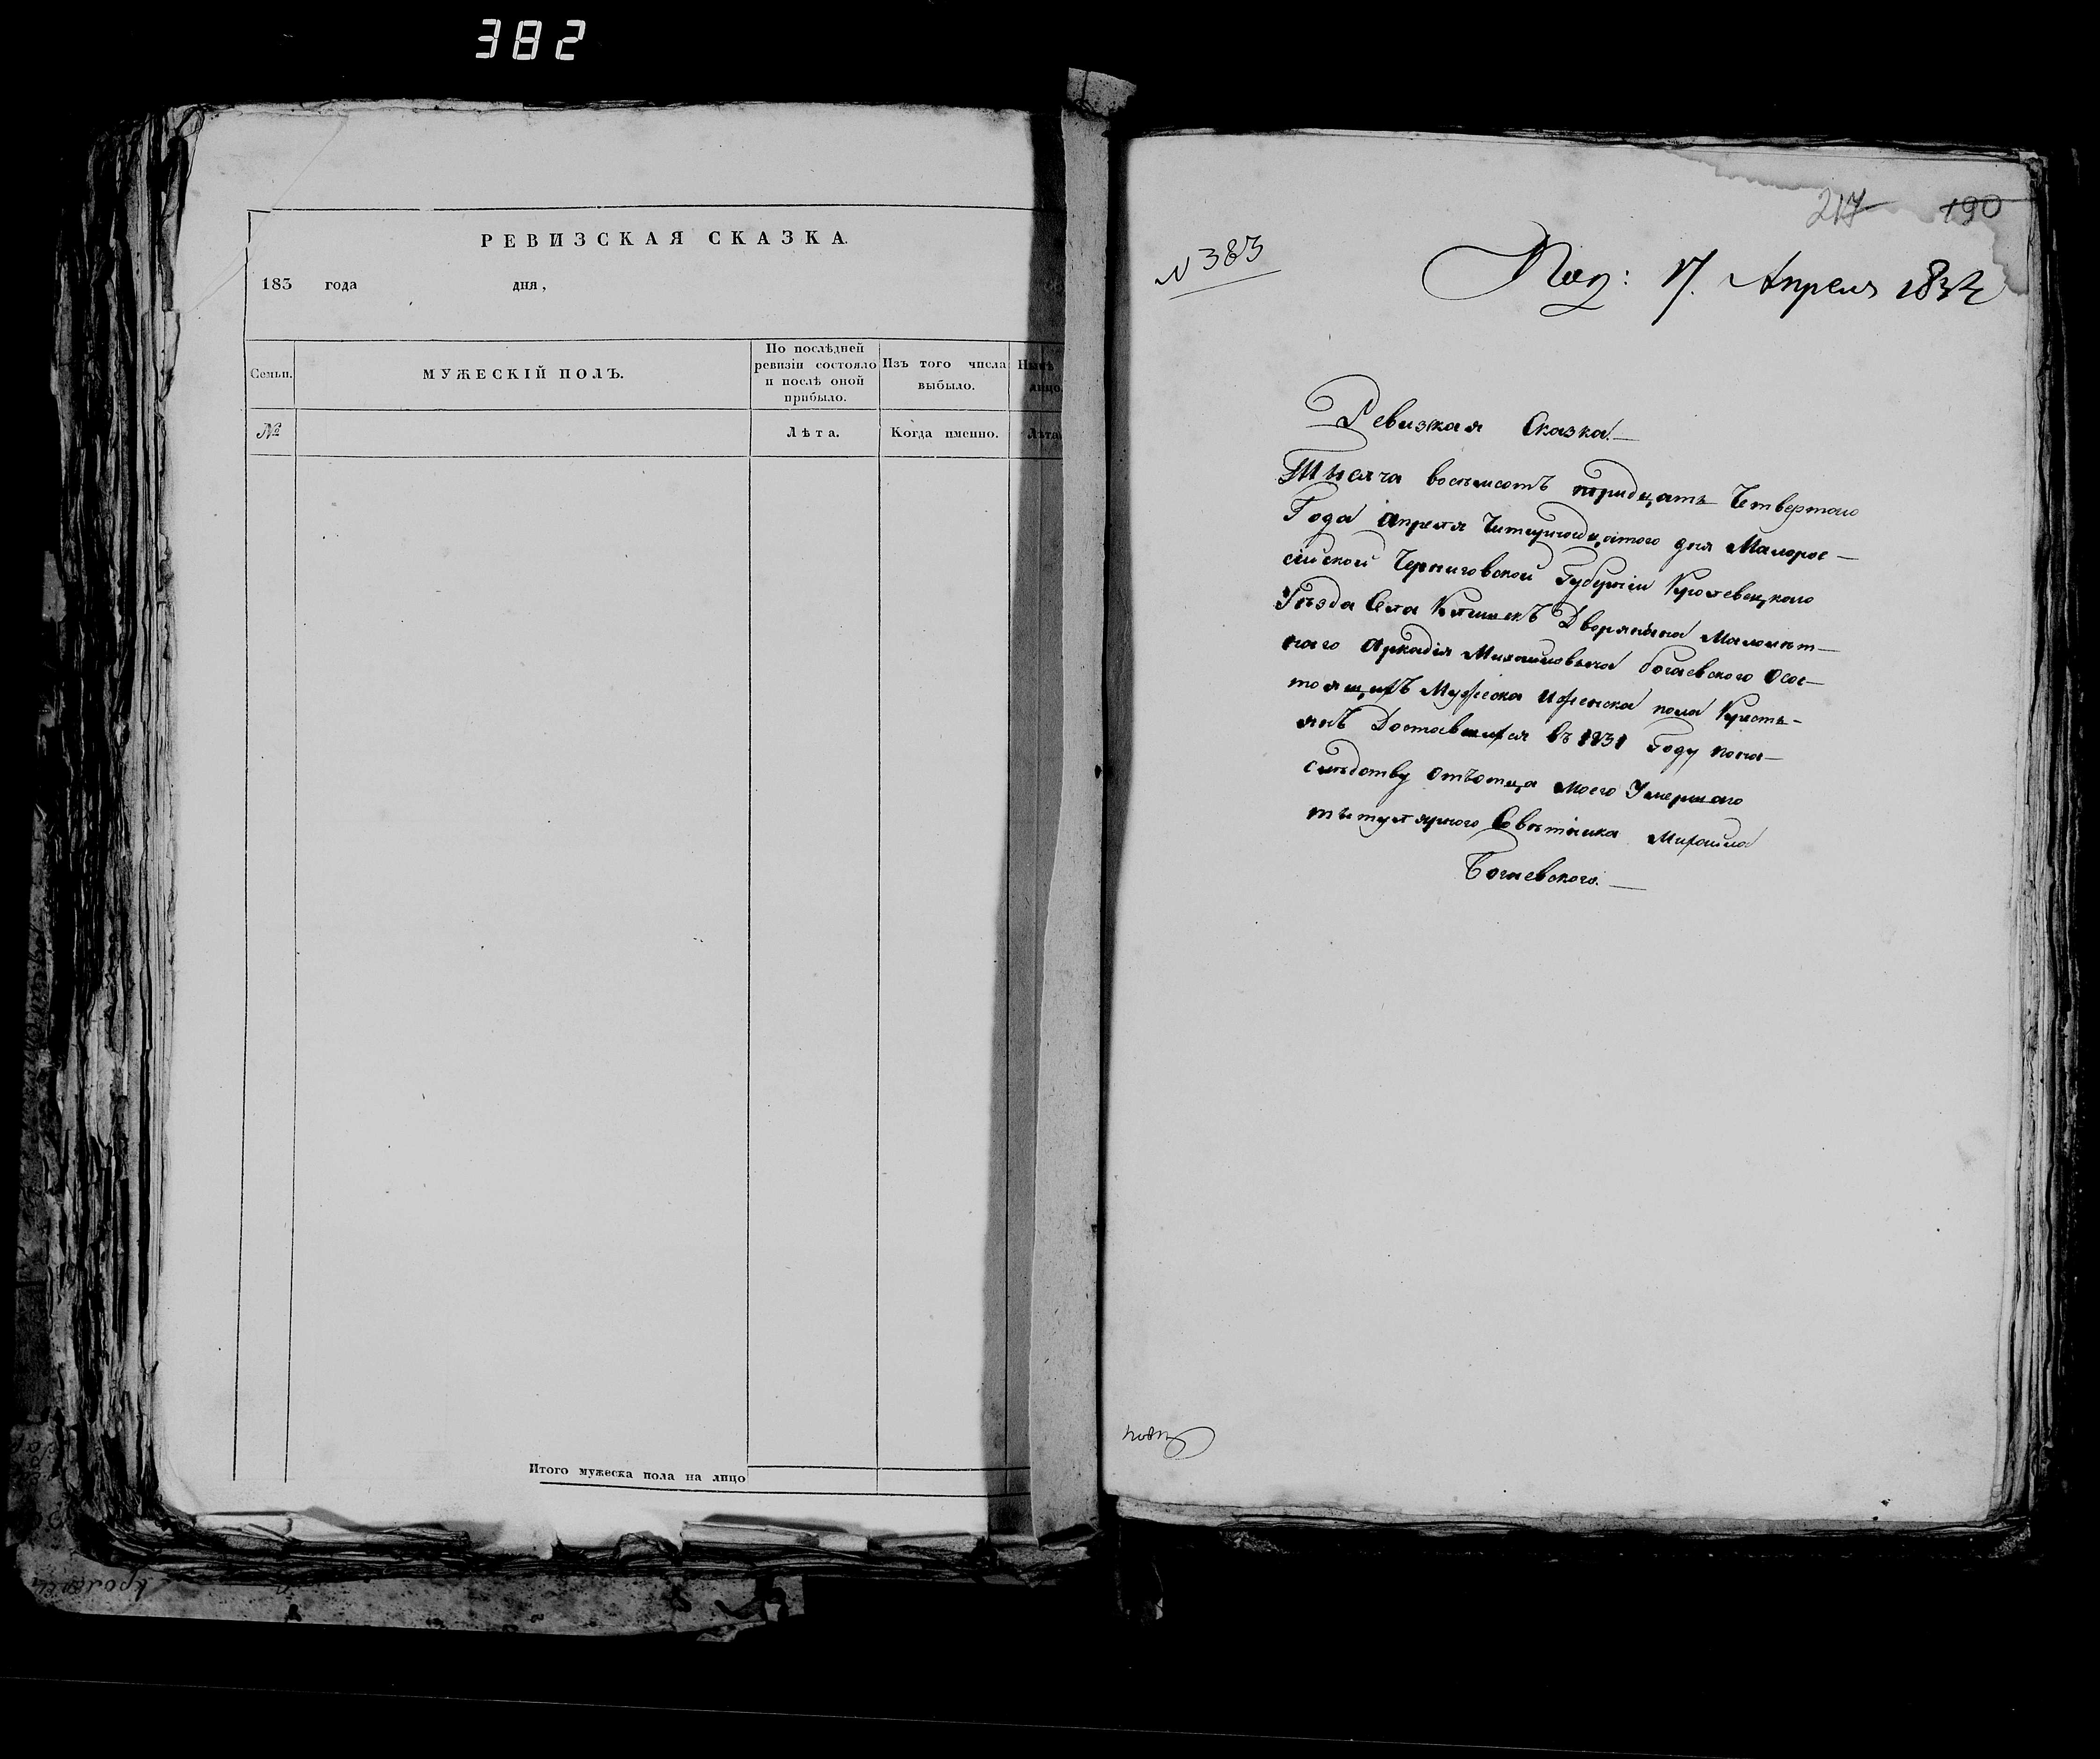 382
РЕВИЗСКАЯ СКАЗКА.
183 года дня,
Семьи.
МУЖЕСКІЙ ПОЛЪ.
По послѣдней
ревизіи состояло
и послѣ оной
прибыло.
Изъ того числа
выбыло.
№
Лѣта.
Когда именно.
Итого мужеска пола на лицо
217 190
N 383
Под: 17. Апреля 1834
Ревизкая Сказка.—
Тысяча восемсотъ тридцать Четвертого
Года Апреля Читирнодцатого дня Малорос—
сійской Черниговской Губерніи Кролевецкого
Уѣзда Села Клишекъ Дворянина Малолѣт—
наго Аркадія Михаиловича Богаевского Осос—
тоящихъ Мужеска иженска пола Кресть-
янъ Доставшихся въ 1831 Году пона—
слѣдству отъотца моего Умершаго
титулярного Совѣтника Михаила
Богаевского.—